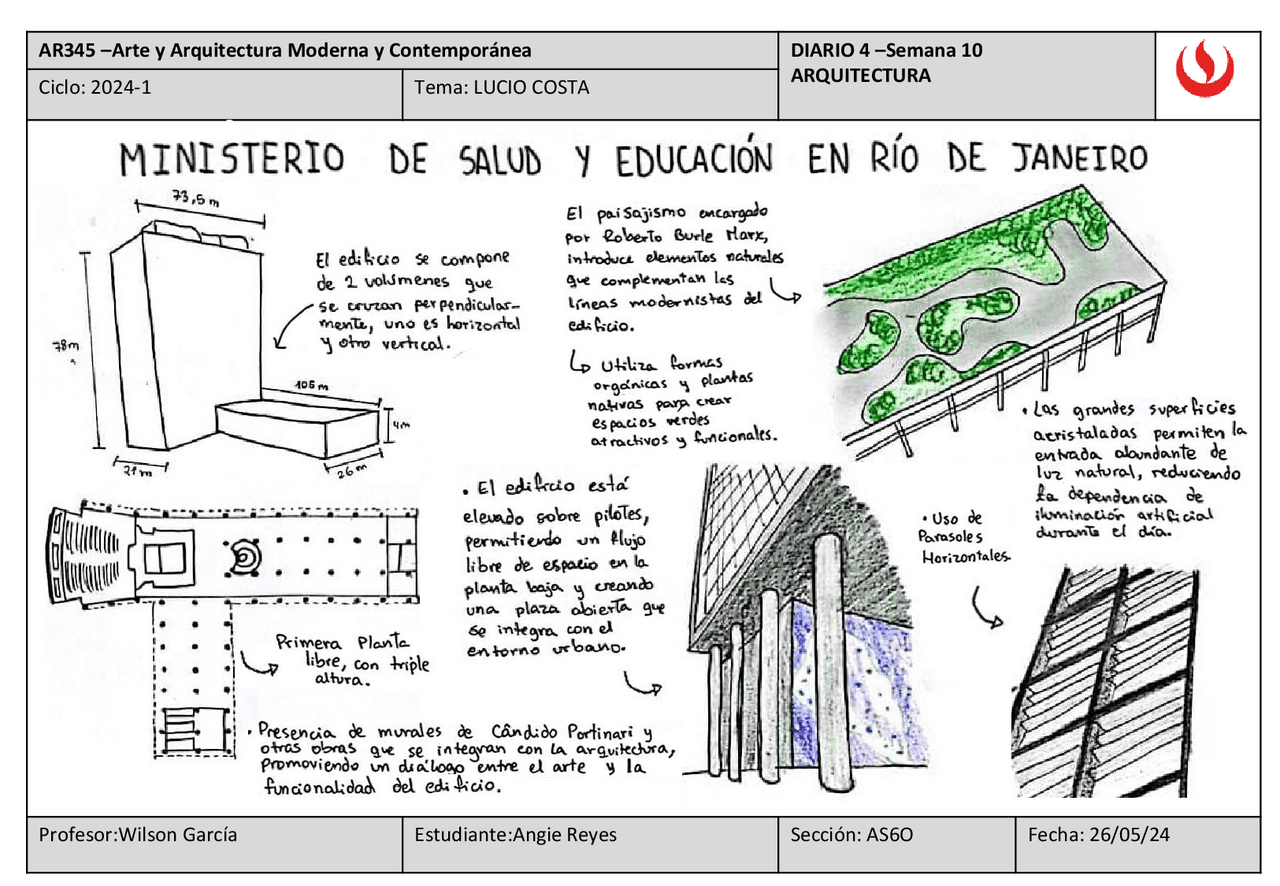 AR345 –Arte y Arquitectura Moderna y Contemporánea
DIARIO 4 –Semana 10
ARQUITECTURA
Ciclo: 2024-1
Tema: LUCIO COSTA
MINISTERIO DE SALUD Y EDUCACIÓN EN RÍO DE JANEIRO
73,5 m
78m
21 m
105 m
4m
26 m
El edificio se compone
de 2 volúmenes que
se cruzan perpendicular-
mente, uno es horizontal
y otro vertical.
El paisajismo encargado
por Roberto Burle Marx,
introduce elementos naturales
que complementan las
líneas modernistas del
edificio.
Utiliza formas
orgánicas y plantas
nativas para crear
espacios verdes
atractivos y funcionales.
• Las grandes superficies
acristaladas permiten la
entrada abundante de
luz natural, reduciendo
la dependencia de
iluminación artificial
durante el día.
• El edificio está
elevado sobre pilotes,
permitiendo un flujo
libre de espacio en la
planta baja y creando
una plaza abierta que
se integra con el
entorno urbano.
• Uso de
Parasoles
Horizontales.
Primera Planta
libre, con triple
altura.
• Presencia de murales de Cândido Portinari y
otras obras que se integran con la arquitectura,
Promoviendo un diálogo entre el arte y la
funcionalidad del edificio.
Profesor:Wilson García
Estudiante:Angie Reyes
Sección: AS6O
Fecha: 26/05/24